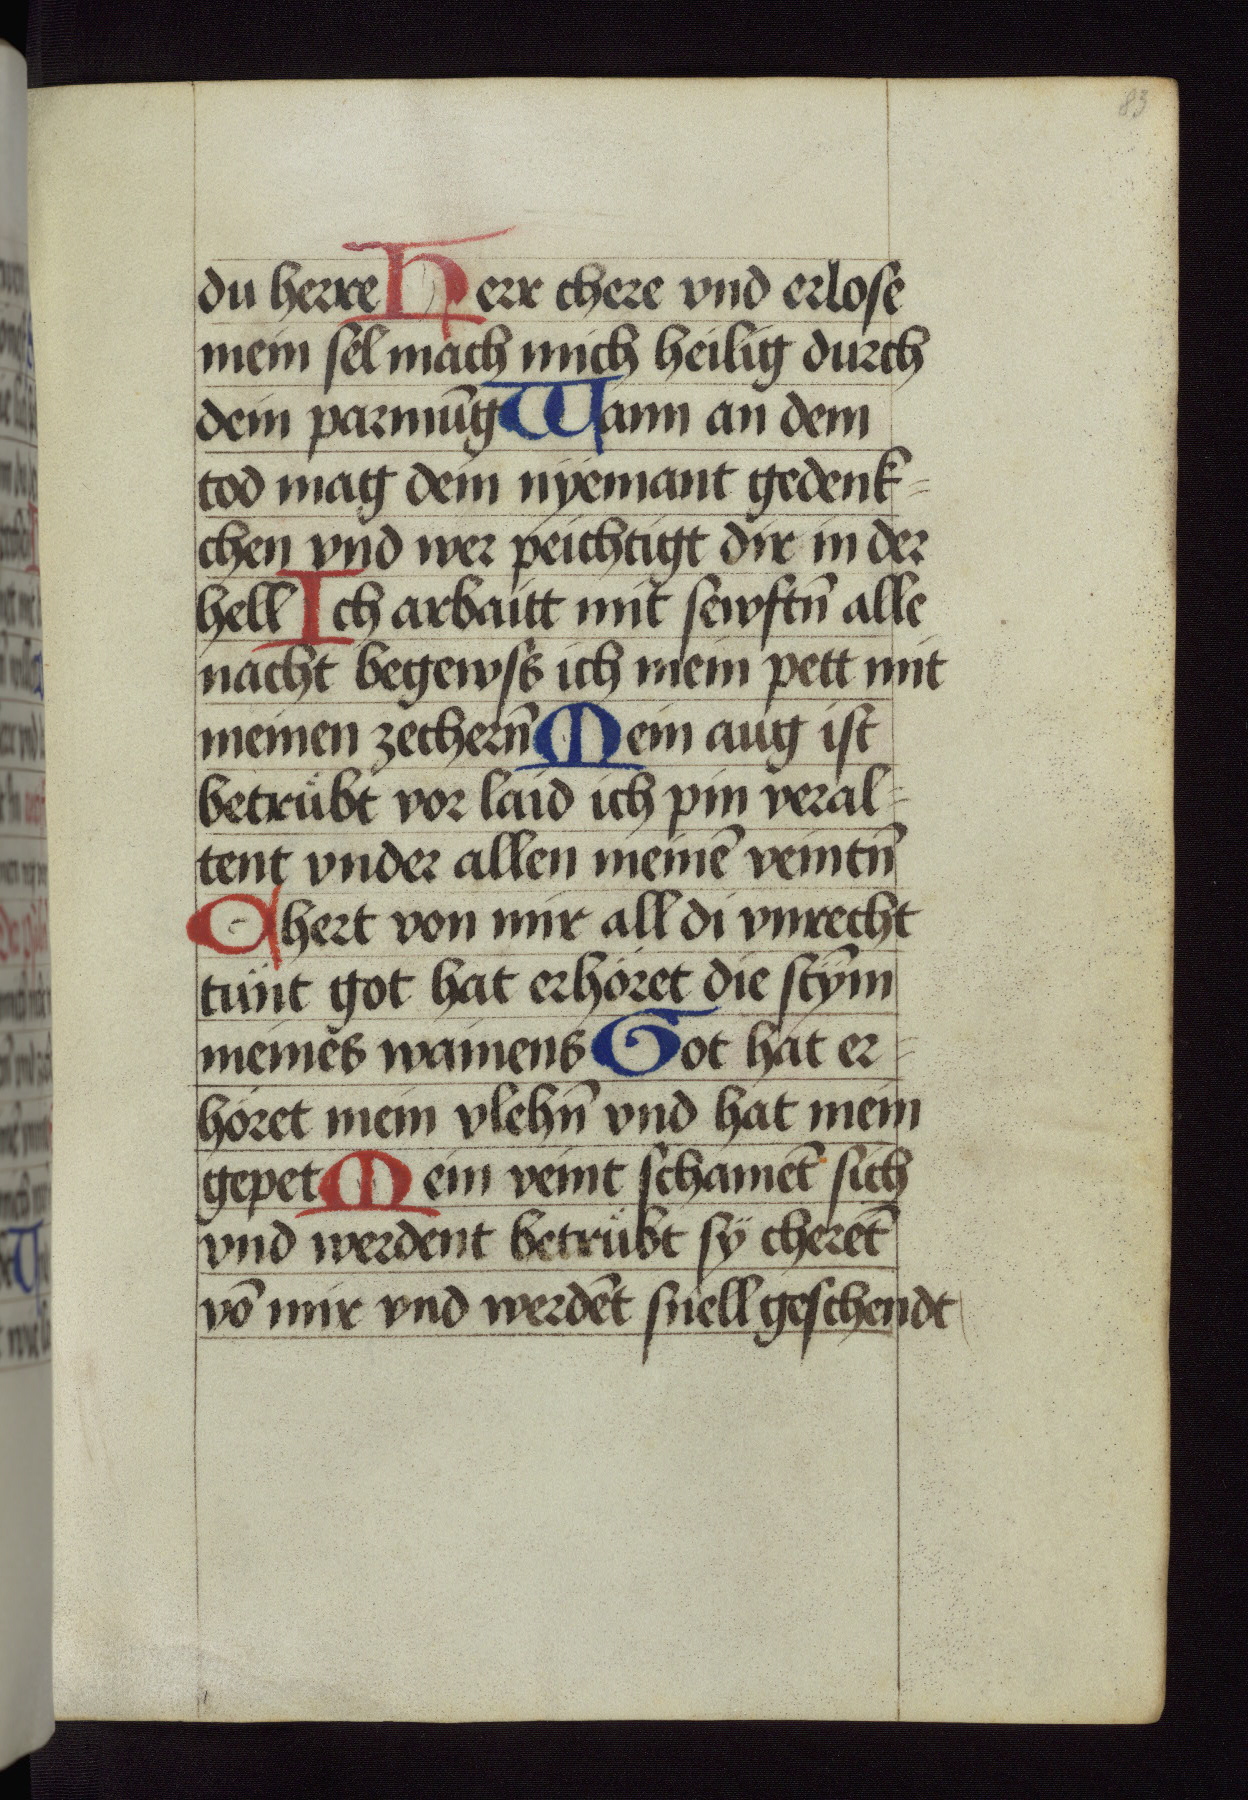 83
du herre Herr chere vnd erlose
mein sel mach mich heilig durch
dein parmūg Wann an dem
tod mag dein nyemant gedenk=
chen vnd wer peichtigt dir in der
hell Ich arbaitt mit sewftn̄ alle
nacht begewss ich mein pett mit
meinen zechern̄ Mein aug ist
betrůbt vor laid ich pin veral=
tent vnder allen meinē veintn̄
Chert von mir all di vnrecht
tůnt got hat erhoret die stym̄
meines wainens Got hat er=
horet mein vlehn̄ vnd hat mein
gepet Mein veint schamēt sich
vnd werdent betrůbt sÿ cherēt
vō mir vnd werdēt snell geschendt